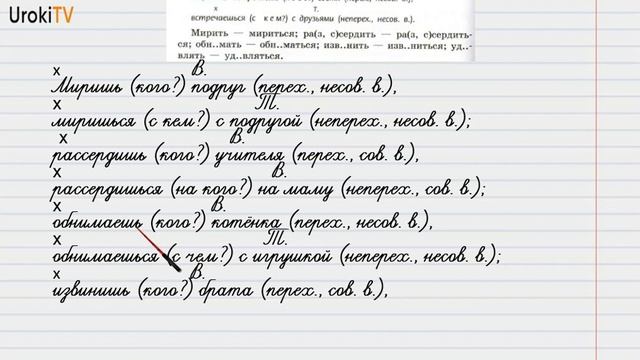 UrokiTV
х т.
встречаешься (с к е м?) с друзьями (неперех., несов. в.).
Мирить — мириться; ра(з, с)сердить — ра(з, с)сердить-
ся; обн..мать — обн..маться; изв..нить — изв..ниться; уд..-
влять — уд..вляться.
х В.
Миришь (кого?) подруг (перех., несов. в.),
х Т.
миришься (с кем?) с подругой (неперех., несов. в.);
х В.
рассердишь (кого?) учителя (перех., сов. в.),
х В.
рассердишься (на кого?) на маму (неперех., сов. в.);
х В.
обнимаешь (кого?) котёнка (перех., несов. в.),
х Т.
обнимаешься (с чем?) с игрушкой (неперех., несов. в.);
х В.
извинишь (кого?) брата (перех., сов. в.),